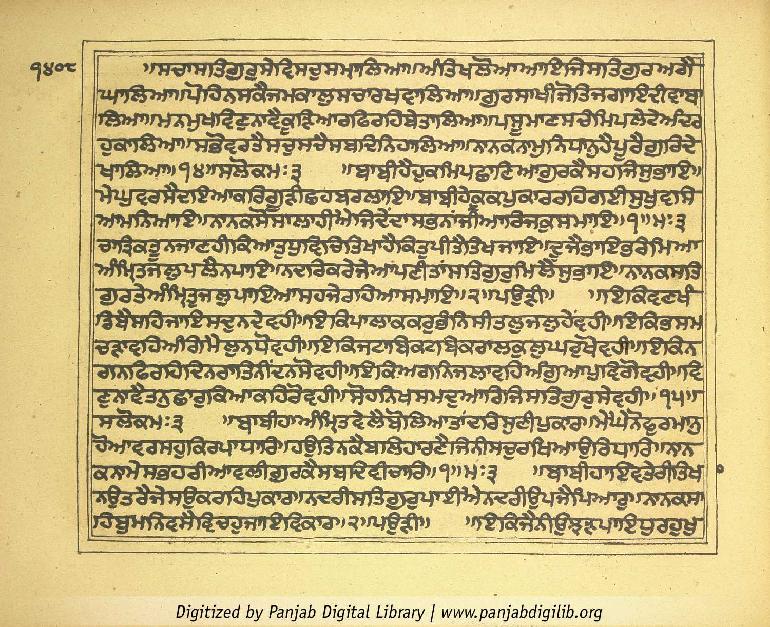 ੧੪੦੮
॥ਸਚਾਸਤਿਗੁਰੁਸੇਵਿਸਚੁਸਮਾਲਿਆ॥ਅੰਤਿਖਲੋਆਆਇਜਿਸਤਿਗੁਰਅਗੈ
ਘਾਲਿਆ॥ਪੋਹਿਨਸਕੈਜਮਕਾਲੁਸਚਾਰਖਵਾਲਿਆ॥ਗੁਰਸਾਖੀਜੋਤਿਜਗਾਇਦੀਵਾਬਾ
ਲਿਆ॥ਮਨਮੁਖਵਿਣੁਨਾਵੈਕੂੜਿਆਰਫਿਰਹਿਬੇਤਾਲਿਆ॥ਪਸੂਮਾਣਸਚੰਮਿਪਲੇਟੇਅੰਦਰ
ਹੁਕਾਲਿਆ॥ਸਭੋਵਰਤੈਸਚੁਸਚੈਸਬਦਿਨਿਹਾਲਿਆ॥ਨਾਨਕਨਾਮੁਨਿਧਾਨੁਹੈਪੂਰੈਗੁਰਿਦੇ
ਖਾਲਿਆ॥੧੪॥ਸਲੋਕਮਃ੩ ॥ਬਾਬੀਹੈਹੁਕਮਿਪਛਾਣਿਆਗੁਰਕੈਸਹਜਿਸੁਭਾਇ॥
ਮੇਘੁਵਰਸੈਦਾਇਆਕਰਿਗੂੜੀਛਹਬਰਲਾਇ॥ਬਾਬੀਹੇਕੂਕਪੁਕਾਰਰਹਿਗਈਸੁਖੁਵਸਿ
ਆਮਨਿਆਇ॥ਨਾਨਕਸੋਸਾਲਾਹੀਐਜਿਦੇਂਦਾਸਭਨਾਂਜੀਆਰਿਜਕੁਸਮਾਇ॥੧॥ਮਃ੩
ਚਾਤ੍ਰਿਕਤੂਨਜਾਣਹੀਕਿਆਤੁਧੁਵਿਚਿਤਿਖਾਹੈਕਿਤੁਪੀਤੈਤਿਖਜਾਇ॥ਦੂਜੈਭਾਇਭਰੰਮਿਆ
ਅੰਮ੍ਰਿਤਜਲੁਪਲੈਨਪਾਇ॥ਨਦਰਿਕਰੇਜੇਆਪਣੀਤਾਂਸਤਿਗੁਰੁਮਿਲੈਸੁਭਾਇ॥ਨਾਨਕਸਤਿ
ਗੁਰਤੇਅੰਮ੍ਰਿਤਜਲੁਪਾਇਆਸਹਜੇਰਹਿਆਸਮਾਇ॥੨॥ਪਉੜੀ॥ ॥ਇਕਿਵਣਖੰ
ਡਿਬੈਸਹਿਜਾਇਸਦੁਨਦੇਵਹੀ॥ਇਕਿਪਾਲਾਕਕਰੁਭੰਨਿਸੀਤਲੁਜਲੁਹੇਂਵਹੀ॥ਇਕਿਭਸਮ
ਚੜਾਵਹਿਅੰਗਿਮੈਲੁਨਧੋਵਹੀ॥ਇਕਿਜਟਾਬਿਕਟਬਿਕਰਾਲਕੁਲੁਘਰੁਖੋਵਹੀ॥ਇਕਿਨ
ਗਨਫਿਰਹਿਦਿਨਰਾਤਿਨੀਂਦਨਸੋਵਹੀ॥ਇਕਿਅਗਨਿਜਲਾਵਹਿਅੰਗੁਆਪੁਵਿਗੋਵਹੀ॥ਵਿ
ਣੁਨਾਵੈਤਨੁਛਾਰੁਕਿਆਕਹਿਰੋਵਹੀ॥ਸੋਹਨਿਖਸਮਦੁਆਰਿਜਿਸਤਿਗੁਰੁਸੇਵਹੀ॥੧੫॥
ਸਲੋਕਮਃ੩ ॥ਬਾਬੀਹਾਅੰਮ੍ਰਿਤਵੇਲੈਬੋਲਿਆਤਾਂਦਰਿਸੁਣੀਪੁਕਾਰ॥ਮੇਘੈਨੋਫੁਰਮਾਨੁ
ਹੋਆਵਰਸਹੁਕਿਰਪਾਧਾਰਿ॥ਹਉਤਿਨਕੈਬਲਿਹਾਰਣੈਜਿਨੀਸਚੁਰਖਿਆਉਰਿਧਾਰਿ॥ਨਾਨ
ਕਨਾਮੇਸਭਹਰੀਆਵਲੀਗੁਰਕੈਸਬਦਿਵੀਚਾਰਿ॥੧॥ਮਃ੩ ॥ਬਾਬੀਹਾਇਵਤੇਰੀਤਿਖ
ਨਉਤਰੈਜੇਸਉਕਰਹਿਪੁਕਾਰ॥ਨਦਰੀਸਤਿਗੁਰੁਪਾਈਐਨਦਰੀਉਪਜੈਪਿਆਰੁ॥ਨਾਨਕਸਾ
ਹਿਬੁਮਨਿਵਸੈਵਿਚਹੁਜਾਇਵਿਕਾਰ॥੨॥ਪਉੜੀ॥ ॥ਇਕਿਜੈਨੀਉਝੜਪਾਇਧੁਰਹੁਖੁ
Digitized by Panjab Digital Library | www.panjabdigilib.org